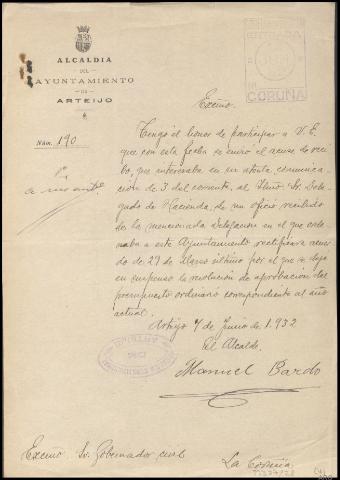 ALCALDIA
DEL
AYUNTAMIENTO
DE
ARTEIJO
Núm. 190
ENTRADA
CORUÑA
Excmo.
Tengo el honor de participar a V. E.
que con esta fecha se envió el acuse de reci-
bo, que interesaba en su atenta comuni-
cación de 3 del corriente, al Iltmo. Sr. Dele-
gado de Hacienda, de un oficio recibido
de la mencionada Delegación en el que orde-
naba a este Ayuntamiento rectificara acuer-
do de 27 de Marzo último por el que se dejó
en suspenso la resolución de aprobación del
presupuesto ordinario correspondiente al año
actual.
Arteijo 7 de Junio de 1.932
El Alcalde.
Manuel Bardo
Excmo Sr. Gobernador civil
La Coruña.